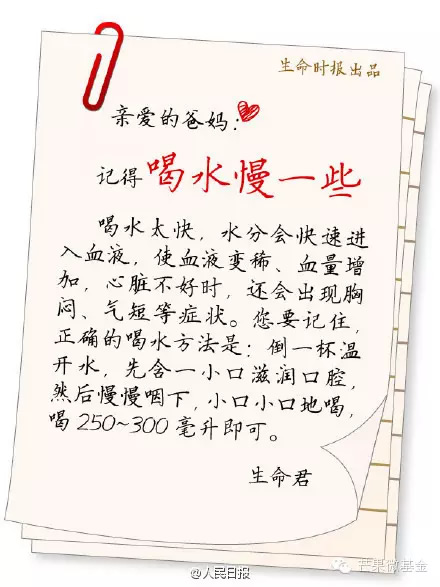 生命时报出品
亲爱的爸妈：
记得喝水慢一些
喝水太快，水分会快速进
入血液，使血液变稀、血量增
加，心脏不好时，还会出现胸
闷、气短等症状。您要记住，
正确的喝水方法是：倒一杯温
开水，先含一小口滋润口腔，
然后慢慢咽下，小口小口地喝，
喝250~300毫升即可。
生命君
@人民日报
芒果微基金